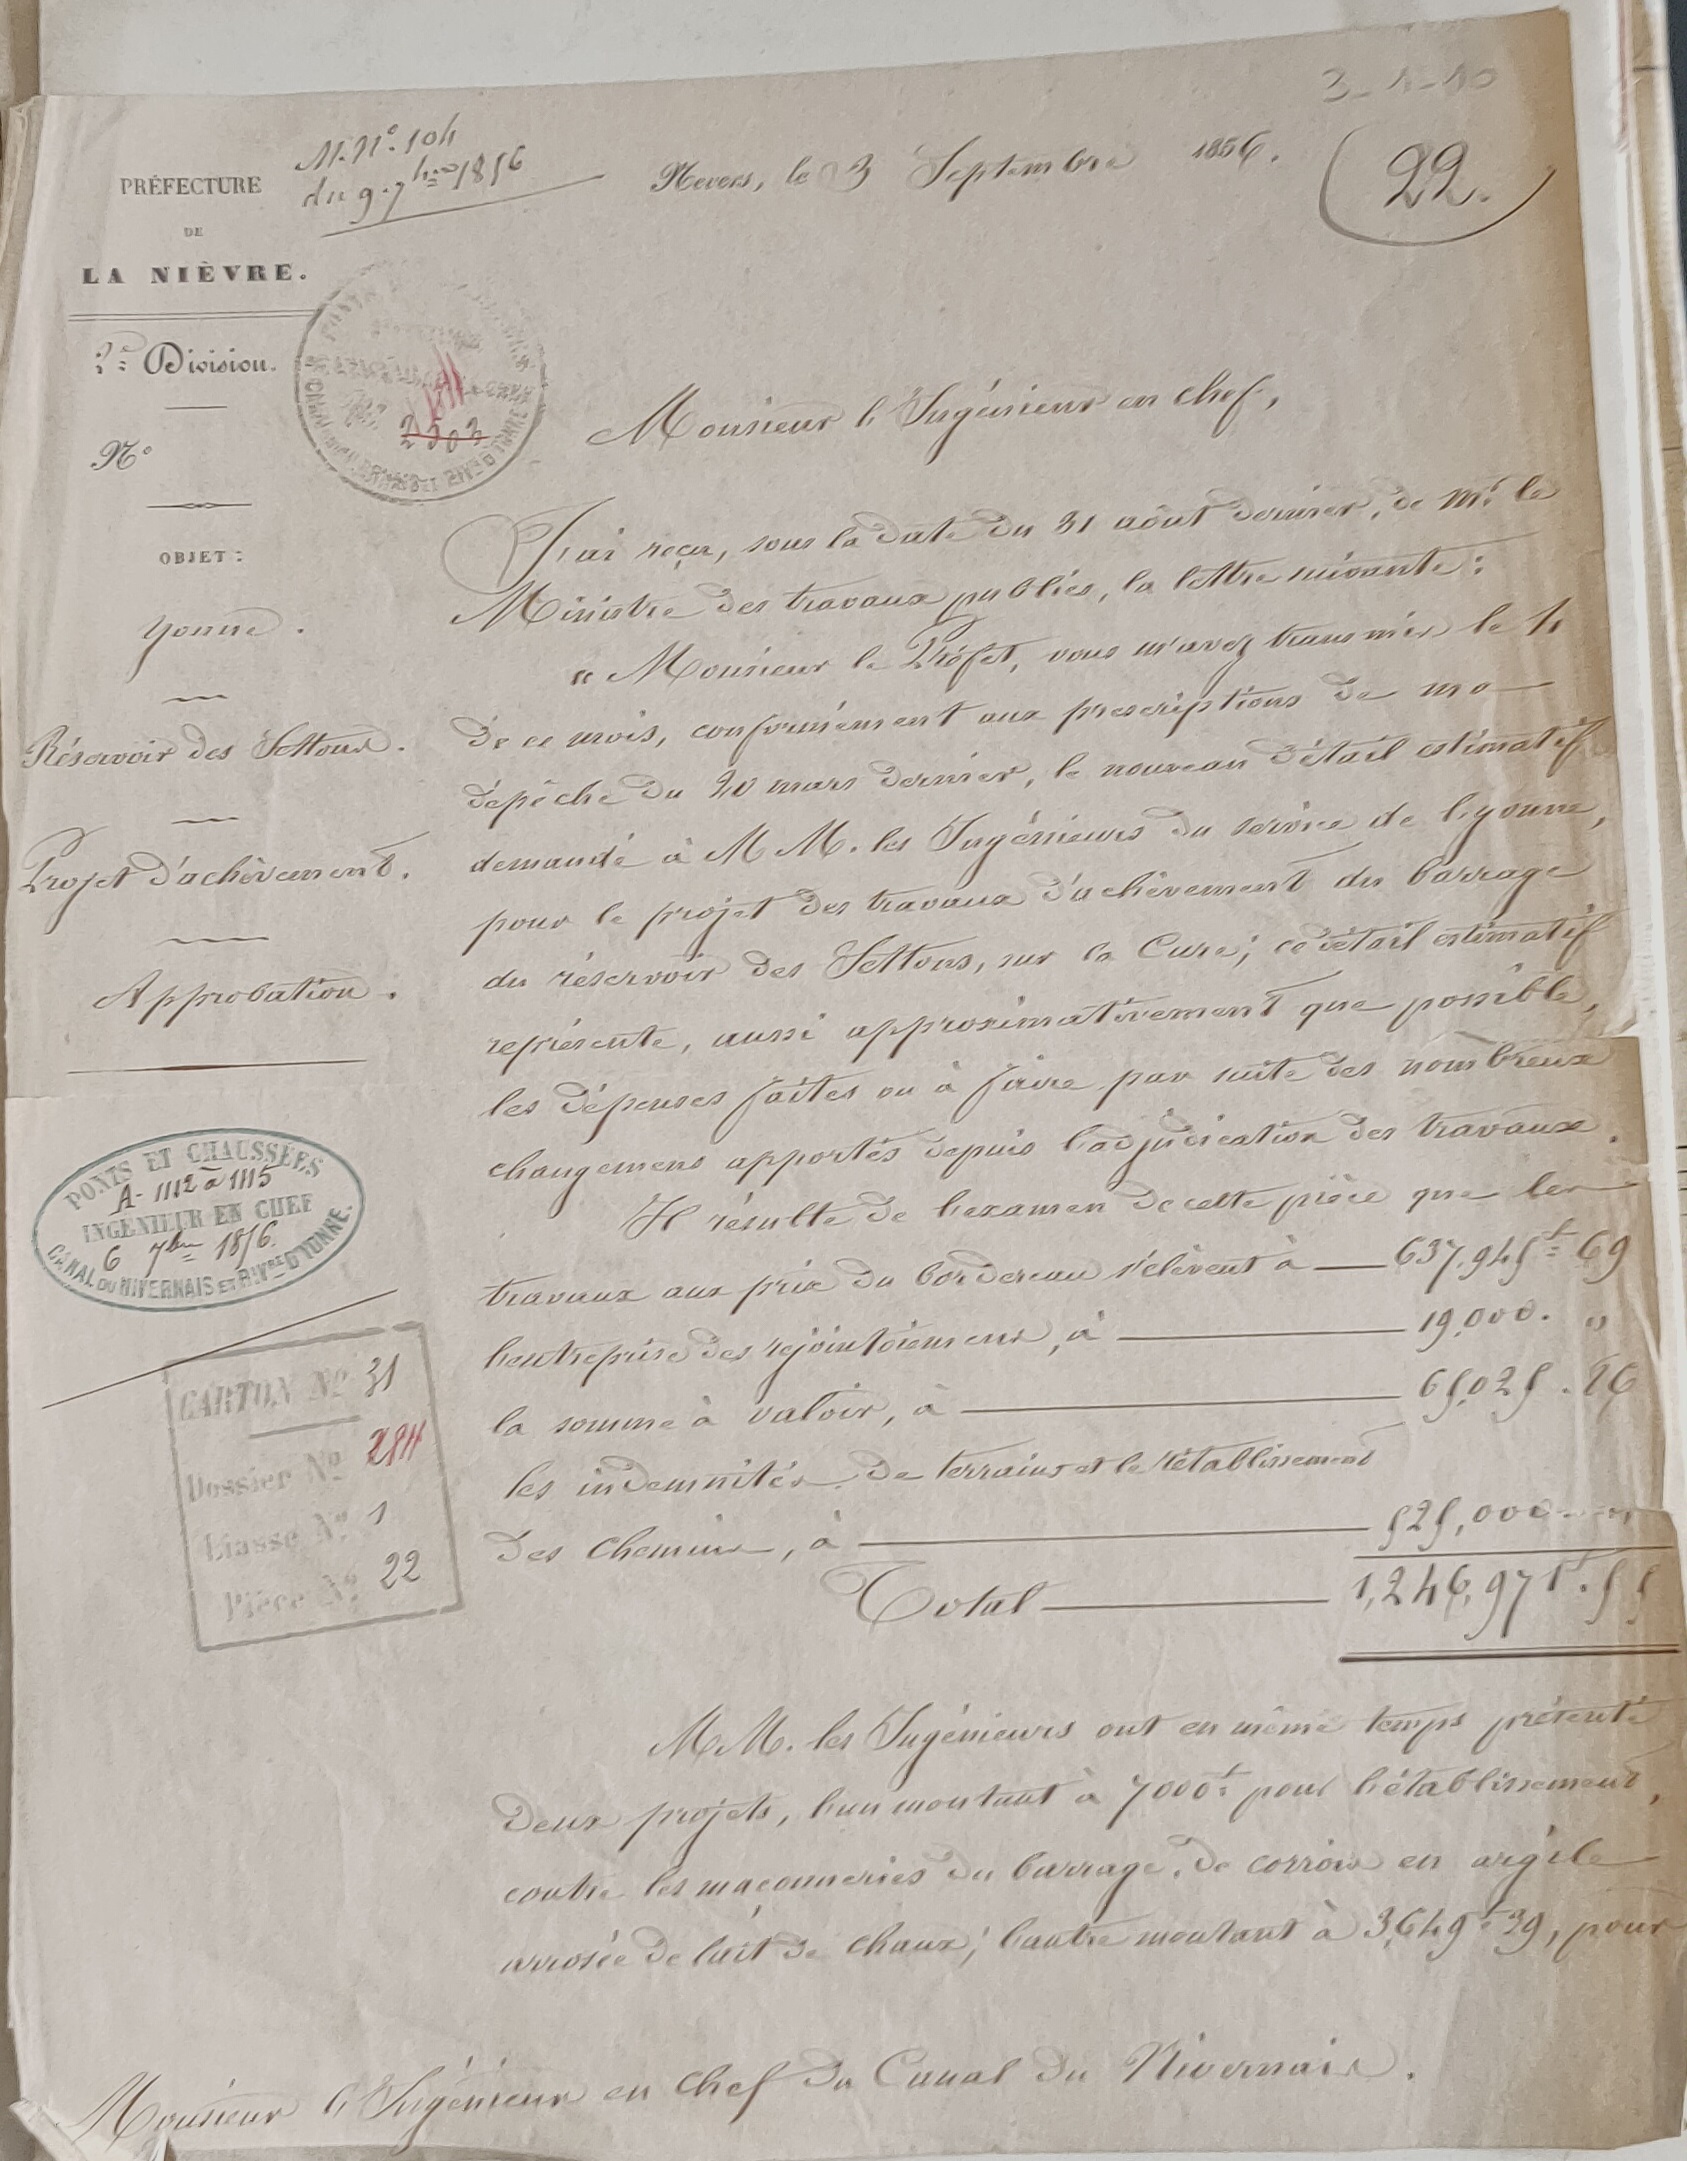 3-1-10
22.
N. N° 104
du 9. 7bre 1856
PRÉFECTURE
DE
LA NIÈVRE.
Nevers, le 3 Septembre 1856.
2e Division.
2503
N°
OBJET:
Yonne.
Réservoir des Settons.
Projet d'achèvement.
Approbation.
Monsieur l'Ingénieur en chef,
J'ai reçu, sous la date du 31 août dernier, de Mr. le
Ministre des travaux publics, la lettre suivante:
« Monsieur le Préfet, vous m'avez transmis le 11
de ce mois, conformément aux prescriptions de ma
dépêche du 20 mars dernier, le nouveau détail estimatif
demandé à MM. les Ingénieurs du service de l'Yonne,
pour le projet des travaux d'achèvement du barrage
du réservoir des Settons, sur la Cure; ce détail estimatif
représente, aussi approximativement que possible,
les dépenses faites ou à faire par suite des nombreux
changemens apportés depuis l'adjudication des travaux.
Il résulte de l'examen de cette pièce que les
travaux aux prix du bordereau s'élèvent à 637.945f 69
l'entreprise des rejointoiemens, à 19,000. "
la somme à valoir, à 65,025.86
les indemnités de terrains et le rétablissement
des chemins, à 525,000
Total 1,246,971f.55
MM. les Ingénieurs ont en même temps présenté
deux projets, l'un montant à 7000f pour l'établissement,
contre les maçonneries du barrage, de corrois en argile
arrosée de lait de chaux; l'autre montant à 3,649f39, pour
Monsieur l'Ingénieur en chef du Canal du Nivernais.
PONTS ET CHAUSSÉES
A- 1112 à 1115
INGÉNIEUR EN CHEF
6 7bre 1856.
CANAL DU NIVERNAIS ET RIVre D'YONNE.
CARTON N° 31
Dossier N° 284
Liasse N° 1
Pièce N° 22